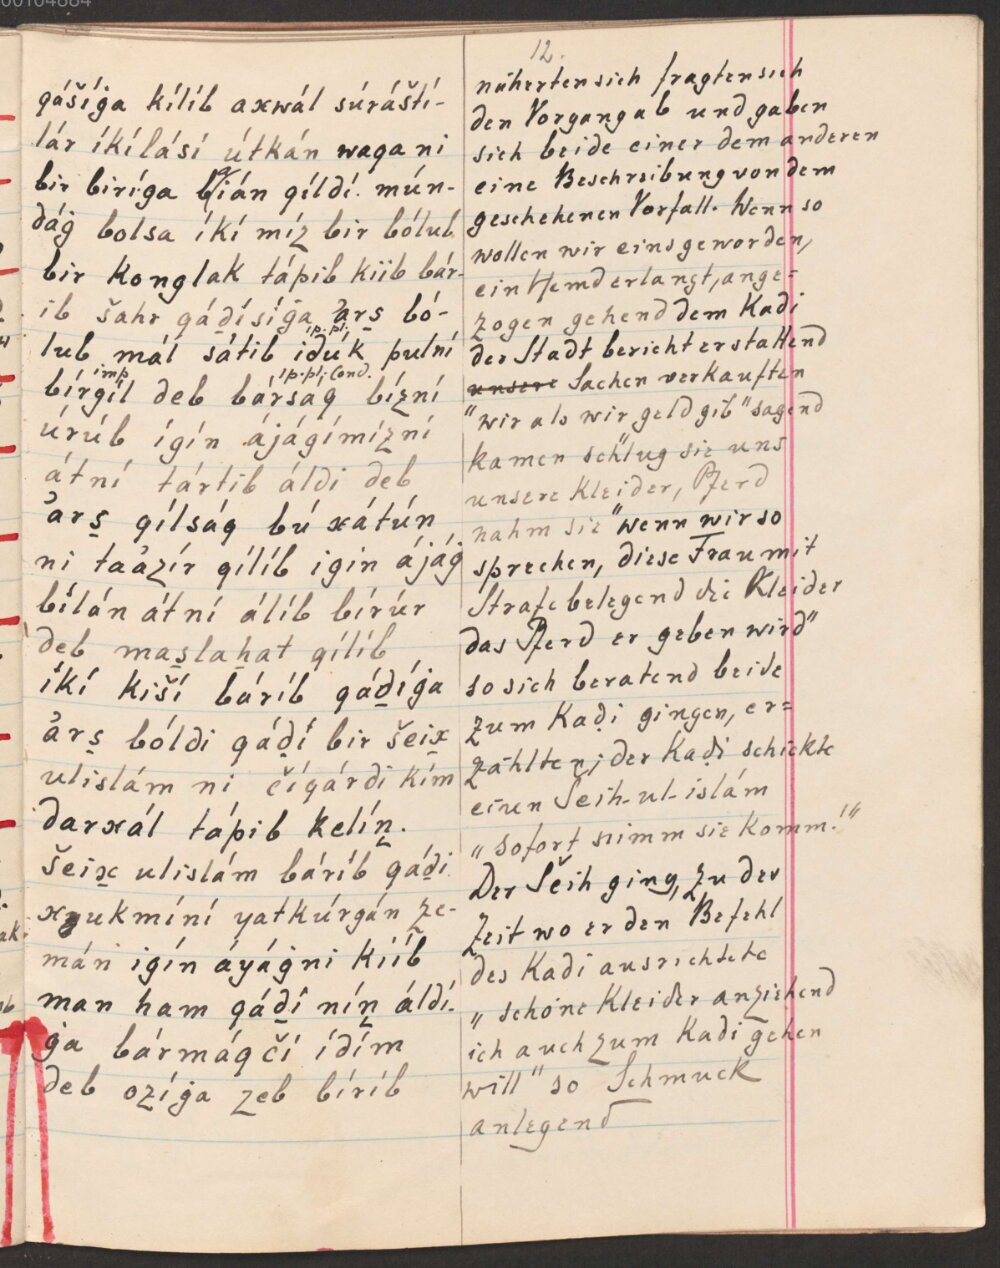 12.
qášíġa kílíb axwál súráští-
lár íkílásí útkán waqa ni
bir biríga bián qíldí. mún-
dág bolsa íkí míz bir bólub
bir konglak tápib kiib bár-
ib šahr qáḍísíġa ảrṣ bó-
ip. pl.
lub mál sátib iduk pulní
imp ip. pl. Cond.
bírgíl deb bársaq bízní
úrúb ígín ájágímízní
átní tártib áldi deb
ảrṣ qílság bú xátún
ni taảzír qílíb igin ájág
bílán átní álíb bírúr
deb maṣlaḥat qílíb
íkí kiší báríb qáḍíġa
ảrṣ bóldi qáḍí bir šeix
ulislám ni čígárdi kím
darxál tápib kelíṉ.
šeix ulislám báríb qáḍi
xukmíní yatkúrgán ze-
mán igín áyágni kiíb
man ham qáḍí níṉ áldí-
ġa bármáqčí ídím
deb ozíġa zeb bíríb
nähertensich fragtensich
den Vorgang ab und gaben
sich beide einer dem anderen
eine Beschreibung von dem
geschehenen Vorfall. Wenn so
wollen wir eins geworden,
ein Hemd erlangt, ange=
zogen gehend dem Kaḍi
der Stadt bericht erstattend
unsere Sachen verkauften
"wir als wir geld gib" sagend
kamen schlug sie uns
unsere Kleider, Pferd
nahm sie "wenn wir so
sprechen, diese Frau mit
Strafe belegend die Kleider
das Pferd er geben wird"
so sich beratend beide
zum Kaḍi gingen, er=
zählten, der Kaḍi schickte
einen Šeih-ul-islám
„sofort nimm sie komm!"
Der Šeih ging, zu der
Zeit wo er den Befehl
des Kadi ausrichtete
„schöne Kleider anziehend
ich auch zum Kadi gehen
will" so Schmuck
anlegend